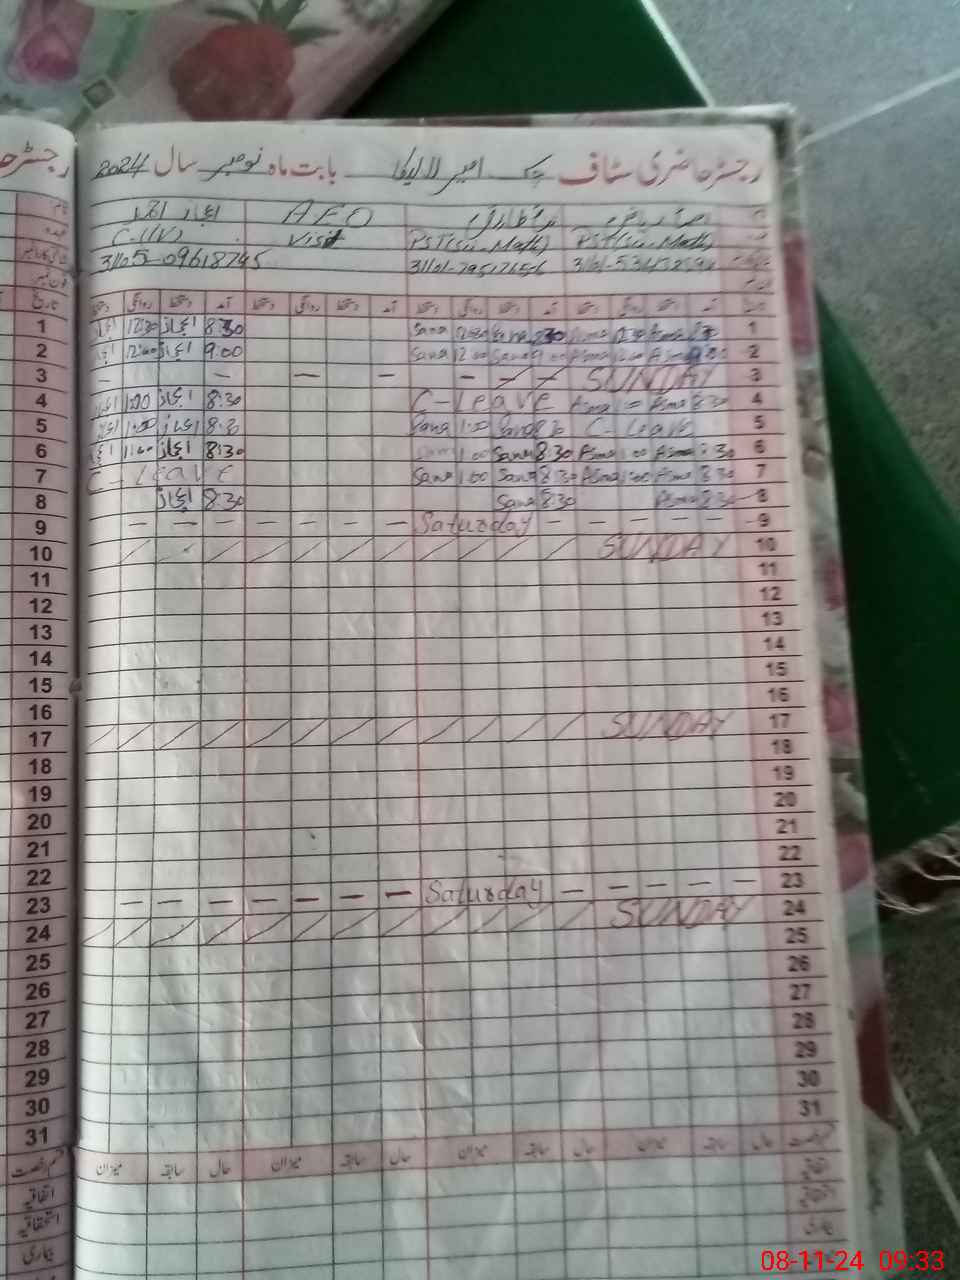 رجسٹر حاضری سٹاف چک امیر لالیکا بابت ماہ نومبر سال 2024
اعجاز احمد AEO
C-(IV) Visit PST(Sci-Math) PST(Sci-Math)
31105-09618745
تاریخ آمد دستخط روانگی دستخط آمد دستخط روانگی دستخط آمد دستخط روانگی دستخط
1 اعجاز 12:30 اعجاز 8:30 Sana 12:30 Sana 8:30 Asma 12:30 Asma 8:30 1
2 12:00 اعجاز 9:00 Sana 12:00 Sana 9:00 Asma 12:00 Asma 9:00 2
3 — — — — — SUNDAY 3
4 1:00 اعجاز 8:30 C-Leave Asma 1:00 Asma 8:30 4
5 1:00 اعجاز 8:30 Sana 1:00 Sana 8:30 C-Leave 5
6 11:00 اعجاز 8:30 1:00 Sana 8:30 Asma 1:00 Asma 8:30 6
7 C-Leave Sana 1:00 Sana 8:30 Asma 1:00 Asma 8:30 7
8 اعجاز 8:30 Sana 8:30 Asma 8:30 8
9 — — — — — — — Saturday — — — — — 9
10 SUNDAY 10
11 11
12 12
13 13
14 14
15 15
16 16
17 SUNDAY 17
18 18
19 19
20 20
21 21
22 22
23 — — — — — — — Saturday — — — — — 23
24 SUNDAY 24
25 25
26 26
27 27
28 28
29 29
30 30
31 31
قسم رخصت حال سابقہ میزان حال سابقہ میزان حال سابقہ میزان حال سابقہ میزان قسم رخصت
اتفاقیہ اتفاقیہ
استحقاقیہ استحقاقیہ
بیماری بیماری
08-11-24 09:33